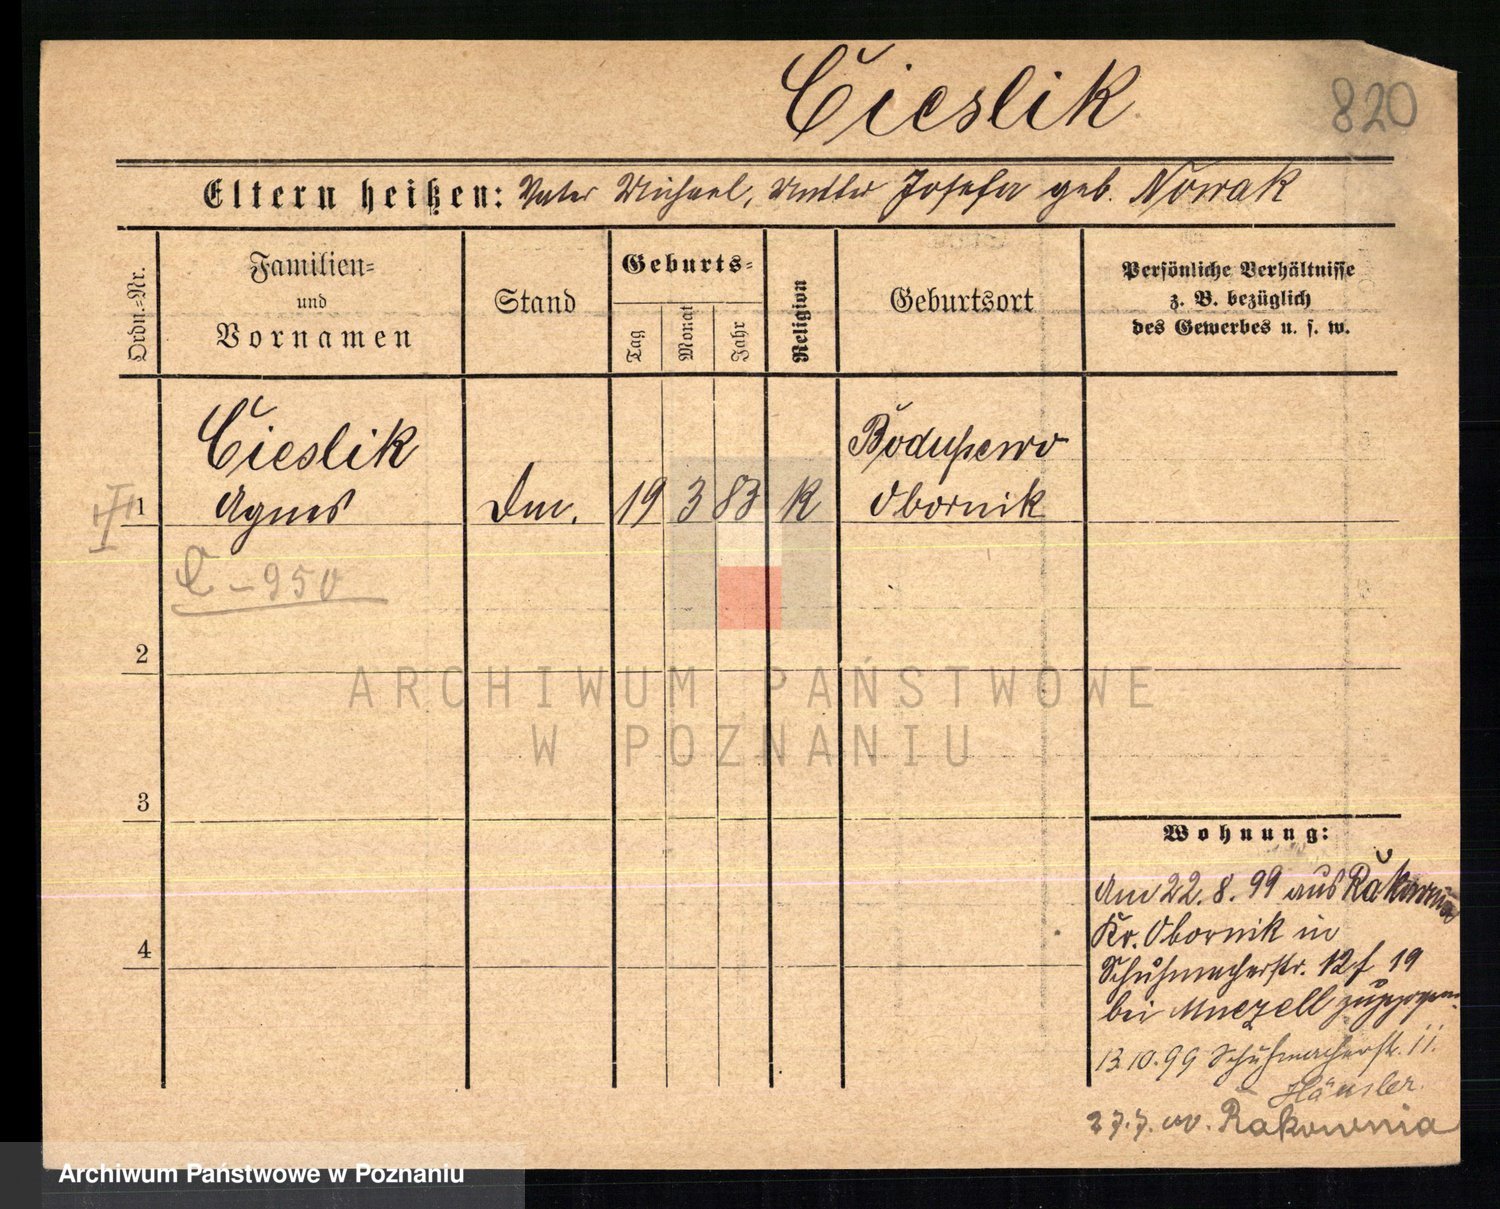 Cieslik 820
Eltern heißen: Vater Michael, Mutter Josefa geb. Nowak
Ordn.-Nr.
Familien-
und
Vornamen
Stand
Geburts-
Tag
Monat
Jahr
Religion
Geburtsort
Persönliche Verhältnisse
z. B. bezüglich
des Gewerbes u. s. w.
Cieslik
Boduszewo
1 Agnes 19 3 83 K Obornik
C - 950
2
ARCHIWUM PAŃSTWOWE
W POZNANIU
3
Wohnung:
Am 22.8.99 aus Rakownia
4
Kr. Obornik in
Schuhmacherstr. 19
bei zugezogen.
13.10.99 Schuhmacherstr. 11.
Häusler.
27.7. Rakownia
Archiwum Państwowe w Poznaniu